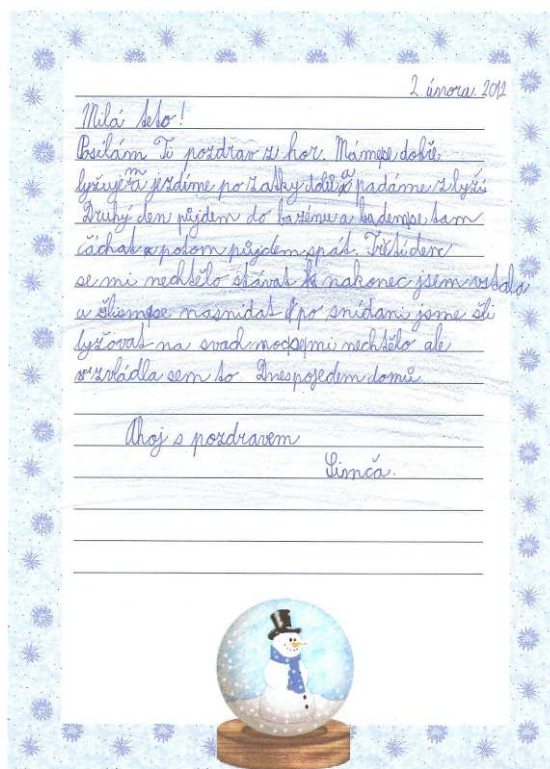 2 února 2012
Milá teto!
Posílám Ti pozdrav z hor. Mámese dobře
lyžujem jezdíme po zatky dobře a padáme z lyží.
Druhý den půjdem do bazénu a budemse tam
čáchat a potom půjdem spát. Třetí den
se mi nechtělo stávat nakonec jsem vstala
a šlismse nasnídat po snídani jsme šli
lyžovat na svach mocsemi nechtělo ale
zvládla sem to Dnes pojedem domů.
Ahoj s pozdravem
Simča.